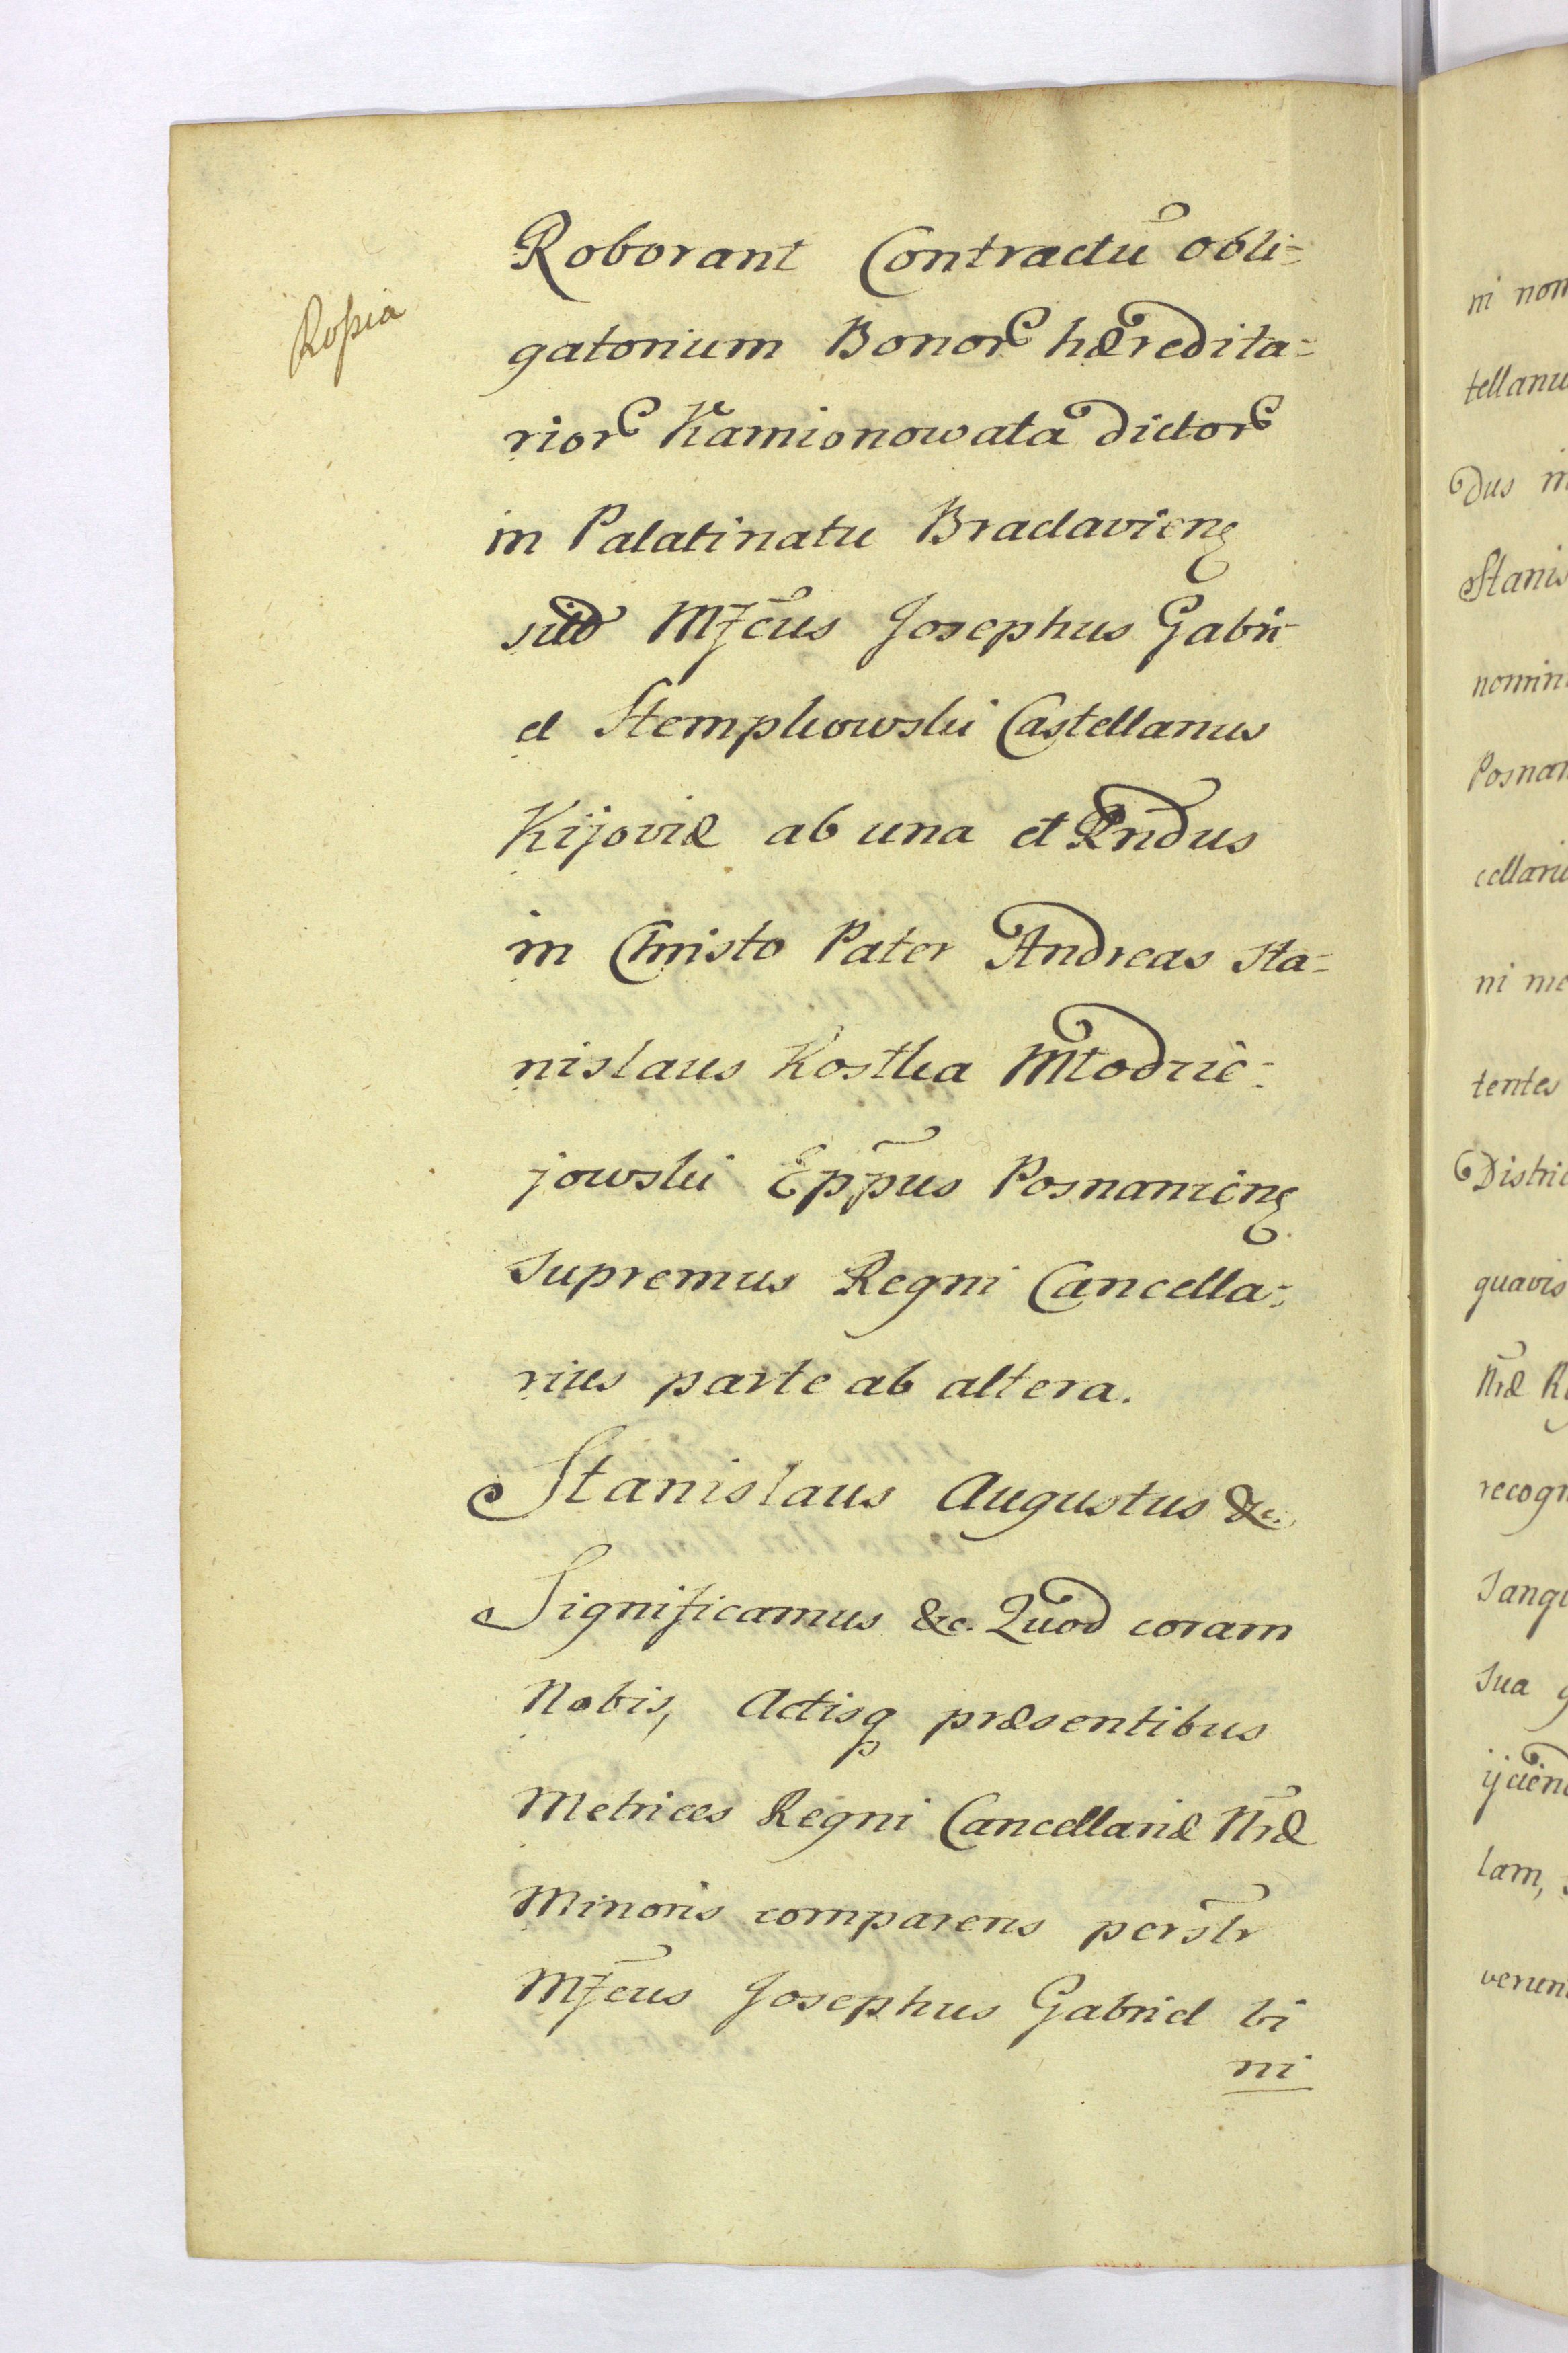 Rossia
Roborant Contractū obli=
gatorium Bonor hæredita=
rior Kamionowata dictor
in Palatinatu Braclavien
sito Mfcus Josephus Gabri
el Stempkowski Castellanus
Kijoviæ ab una et Rndus
in Christo Pater Andreas Sta=
nislaus Kostka Młodzie=
jowski Eppus Posnanien
Supremus Regni Cancella=
rius parte ab altera.
Stanislaus Augustus &c.
Significamus &c. Quod coram
Nobis, Actisq præsentibus
Metrices Regni Cancellariæ Nræ
Minoris comparens persltr
Mfcus Josephus Gabriel bi
ni
ni
tellanu
dus
Stanis
nomin
Posnan
cellariu
ni me
tentes
Distric
quavis
Nræ R
recogn
Sangu
Sua
lam,
verum